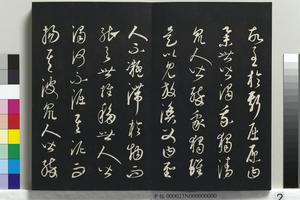 故至於斯屈原曰
舉世皆濁我獨清
眾人皆醉我獨醒
是以見放漁父曰聖
人不凝滯於物而
能與世推移世人皆
濁何不淈其泥而
揚其波眾人皆醉
000023N000000000